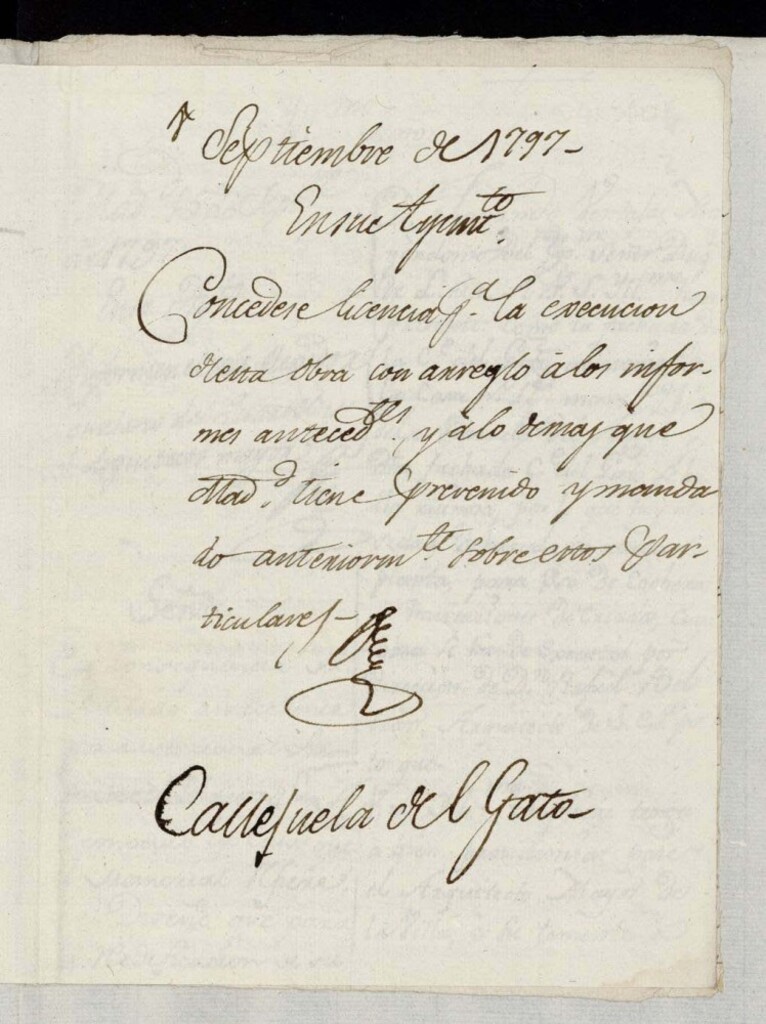 Septiembre de 1797-
En su Ayunt.to
Concedese licencia p.a la execucion
desta obra con arreglo á los infor-
mes anteced.tes, y á lo demas que
Mad.d tiene prevenido y manda
do anteriorm.te sobre estos Par-
ticulares-
Callejuela del Gato-